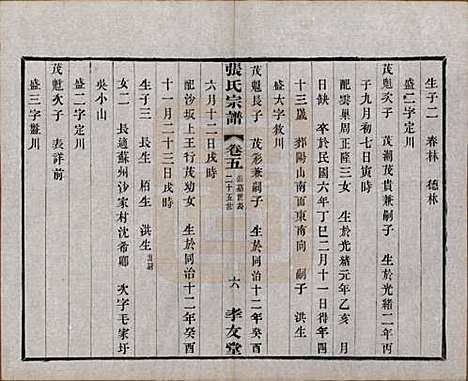 生子二　春林　德林
盛二字定川
茂魁次子　茂潮茂貴兼嗣子　生於光緒二年丙
子九月初七日寅時
配雲巢周正隆三女　生於光緒元年乙亥　月
日缺　卒於民國六年丁巳二月十一日得年四
十三歲　葬陽山南面東南向　嗣子　洪生
盛大字敘川
茂魁長子　茂彩兼嗣子　生於同治十二年癸酉
張氏宗譜　卷五　二十五世　六　孝友堂
六月十二日戌時
配沙坂上王行茂幼女　生於同治十二年癸酉
十一月二十三日戌時
生子三　長生　栢生　洪生
女二　長適蘇州沙家村沈希卿　次字毛家圩
吳小山
盛二字定川
茂魁次子　表詳前
盛三字鑒川